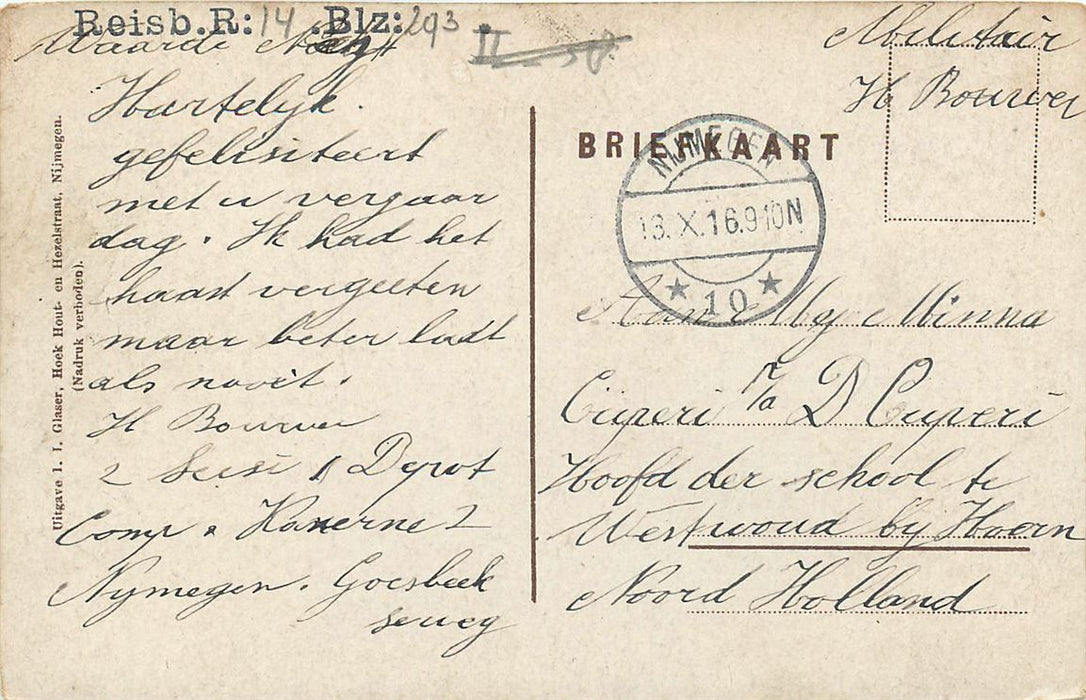 Reisb.R: 14 . Blz: 293
II
Waarde
Hartelyk
gefelisiteert
met u vergaar
dag. Ik had het
haast vergeeten
maar beter laat
als nooit.
H Bouwer
2 1 Depot
Comp. Kaserne 2
Nymegen. Goesbeek
seweg
Uitgave I. I. Glaser, Hoek Hout- en Hezelstraat, Nijmegen.
(Nadruk verboden).
Militair
H Bouwer
BRIEFKAART
NIJMEGEN
13.X.16.9-10N
★ 10 ★
Aan Mej Minna
Cuperi p/a D Cuperi
Hoofd der school te
Westwoud by Hoorn
Noord Holland